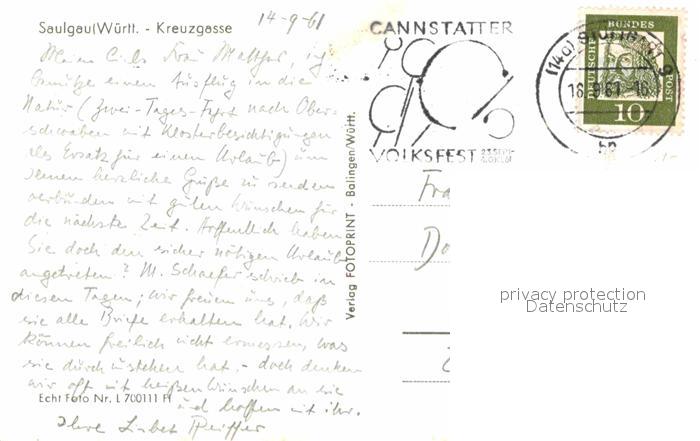 Saulgau(Württ. - Kreuzgasse
14-9-61
Meine liebe Frau Matthes, ich
benütze einen Ausflug in die
Natur (Zwei-Tages-Fahrt nach Ober-
schwaben mit Klosterbesichtigungen
als Ersatz für einen Urlaub) um
Ihnen herzliche Grüße zu senden
verbunden mit guten Wünschen für
die nächste Zeit. Hoffentlich haben
Sie doch den sicher nötigen Urlaub
angetreten? M. Schaefer schrieb in
diesen Tagen; wir freuen uns, daß
sie alle Briefe erhalten hat. Wir
können freilich nicht ermessen, was
sie durchzustehen hat, - doch denken
wir oft mit heißen Wünschen an sie
und hoffen mit ihr.
Ihre Lisbet
Echt Foto Nr. L 700111 Ff
Verlag FOTOPRINT - Balingen/Württ.
CANNSTATTER
VOLKSFEST
23. SEPT.
(14a) STUTTGART 9
-9.61
bp
DEUTSCHE BUNDESPOST
10
Fra
privacy protection
Datenschutz